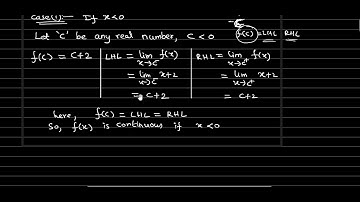 Case(i):- If x<0
Let 'c' be any real number, c<0 f(c)=LHL RHL
f(c) = c+2 LHL = lim x→c⁻ f(x) RHL = lim x→c⁺ f(x)
= lim x→c⁻ x+2 = lim x→c⁺ x+2
= c+2 = c+2
here, f(c) = LHL = RHL
So, f(x) is continuous if x<0